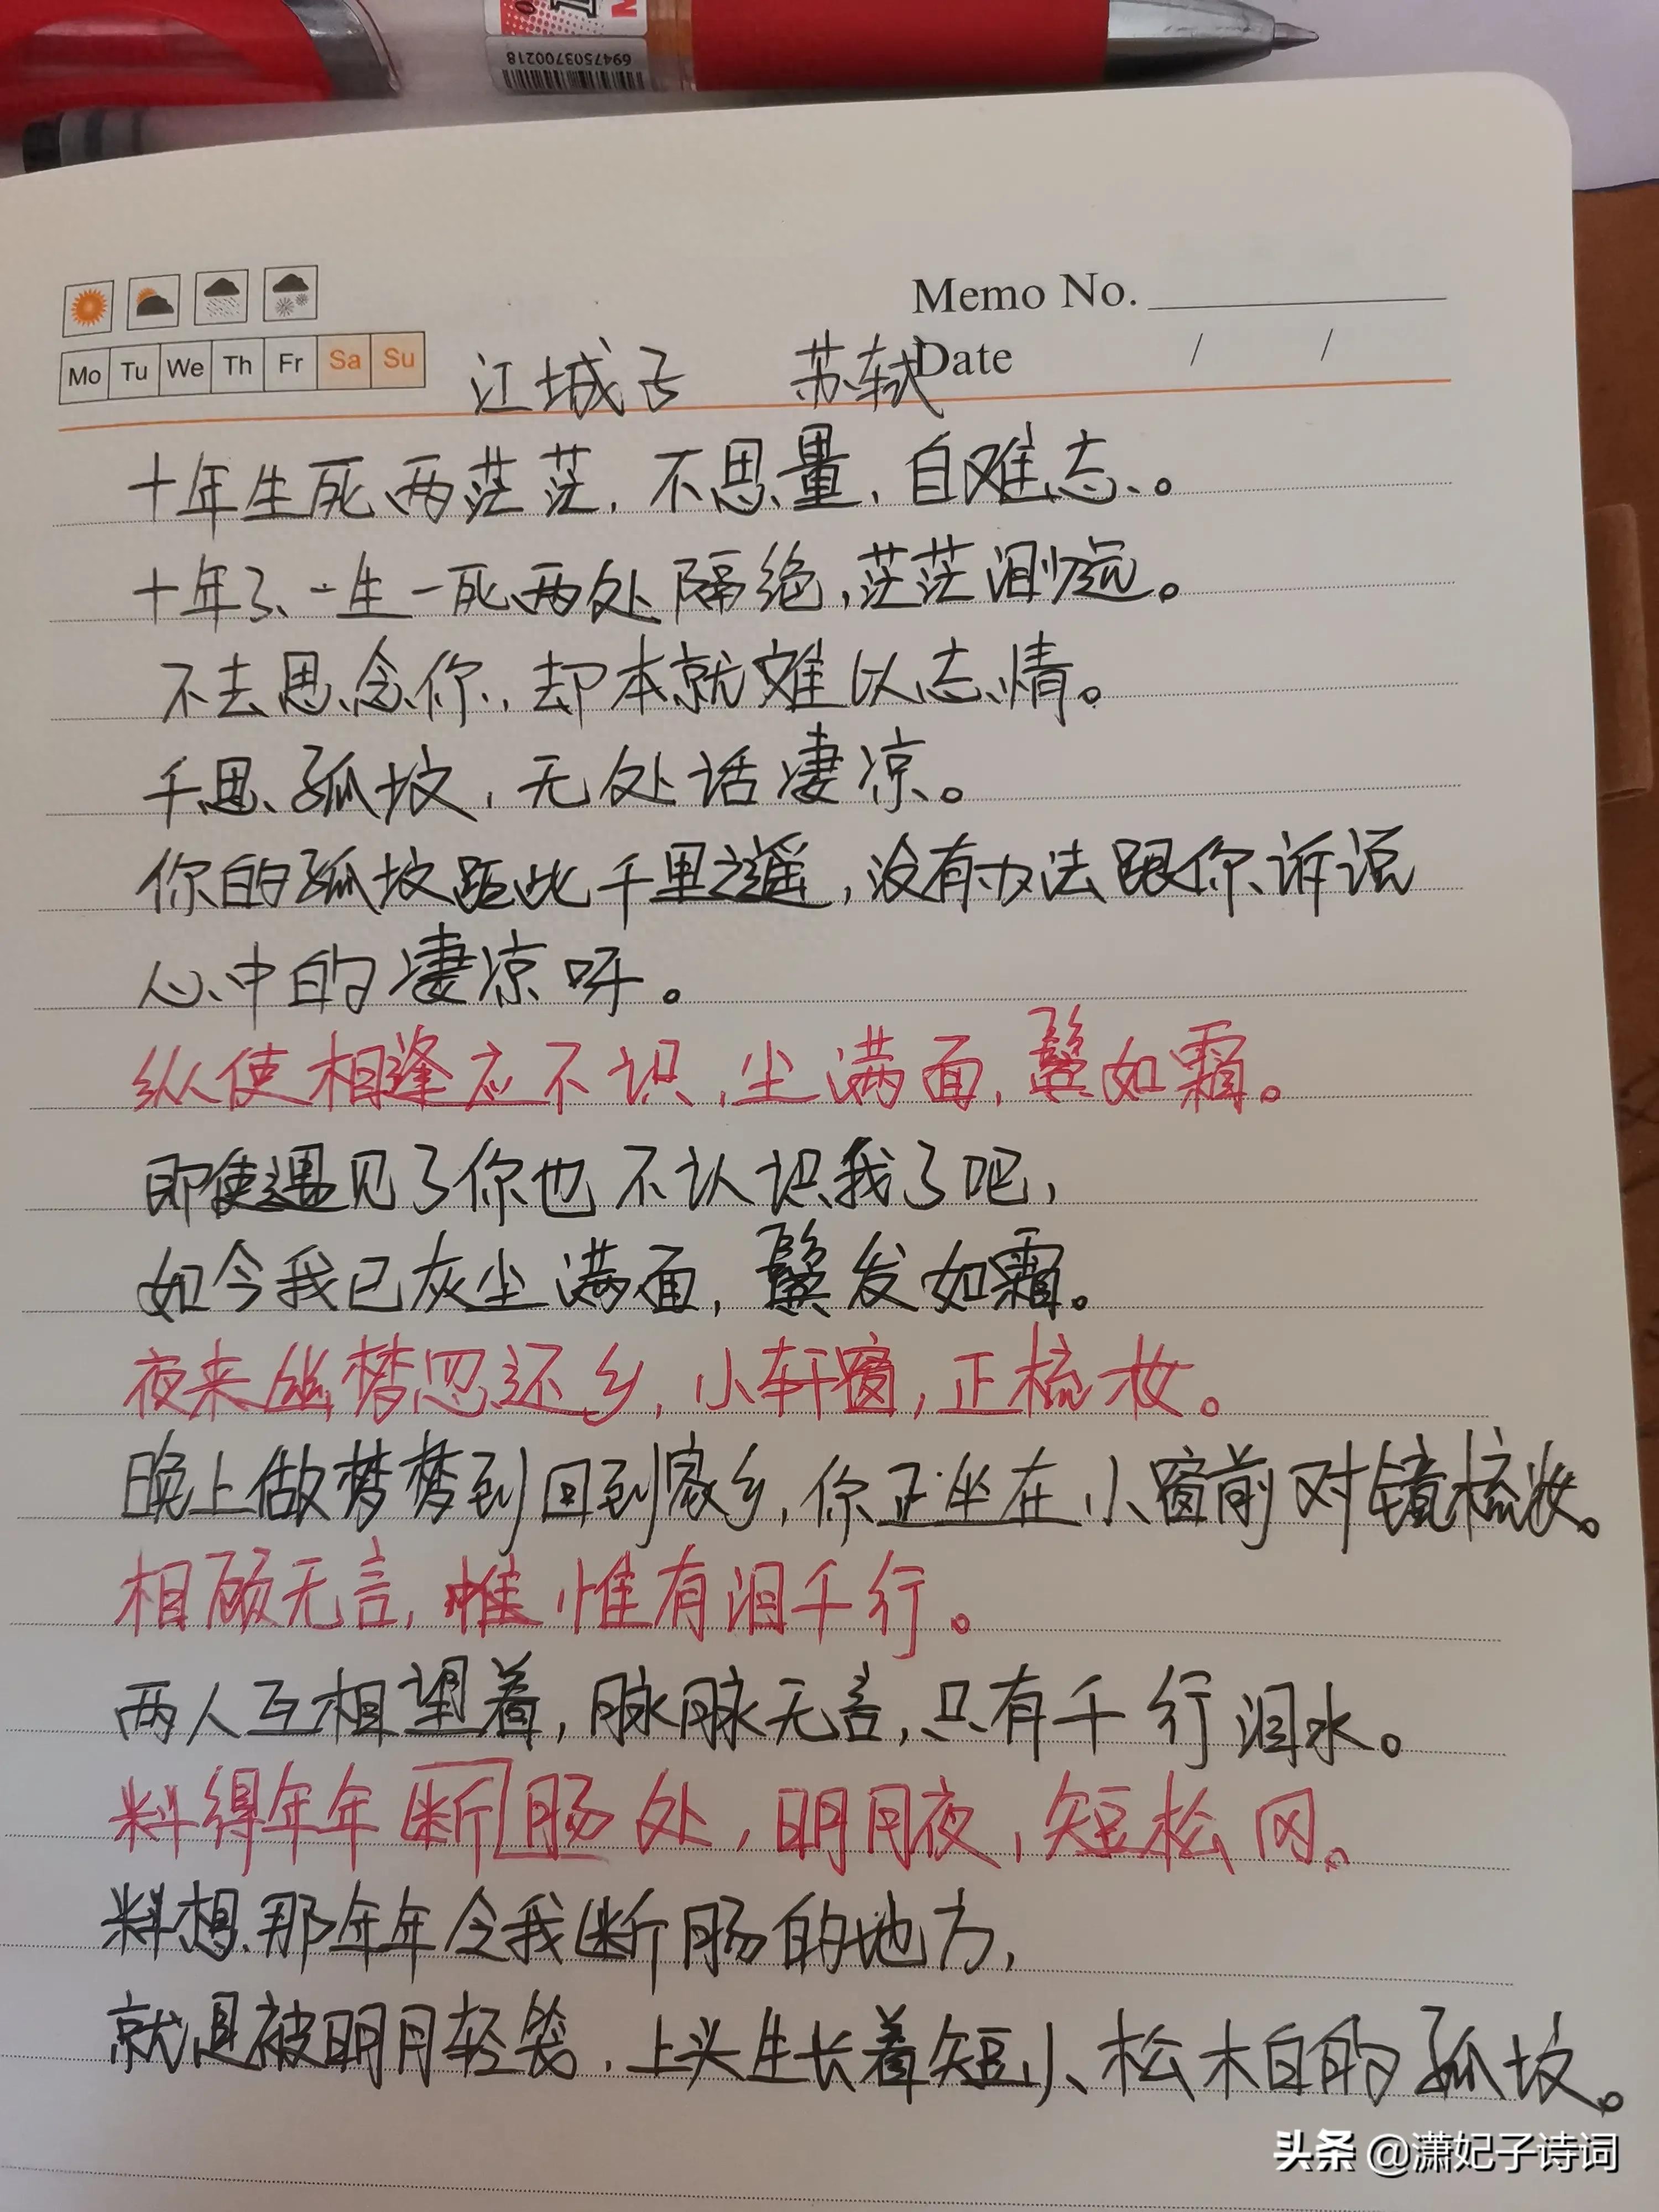 6947503700218
Memo No.
Mo Tu We Th Fr Sa Su
Date / /
江城子 苏轼
十年生死两茫茫，不思量，自难忘。
十年了、一生一死两处隔绝，茫茫泪怆。
不去思念你，却本就难以忘情。
千里孤坟，无处话凄凉。
你的孤坟距此千里之遥，没有办法跟你诉说
心中的凄凉呀。
纵使相逢应不识，尘满面，鬓如霜。
即使遇见了你也不认识我了吧，
如今我已灰尘满面，鬓发如霜。
夜来幽梦忽还乡，小轩窗，正梳妆。
晚上做梦梦到回到家乡，你正坐在小窗前对镜梳妆。
相顾无言，惟有泪千行。
两人互相望着，脉脉无言，只有千行泪水。
料得年年断肠处，明月夜，短松冈。
料想那年年令我断肠的地方，
就是被明月轻笼，上头生长着短小、松柏的孤坟。
头条 @潇妃子诗词